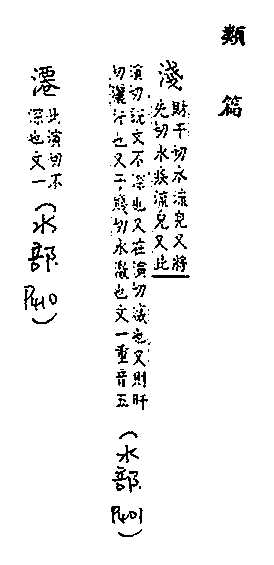 類篇
淺 財干切水流皃又將
先切水疾流皃又此
演切說文不深也又在演切濊也又則旰
切灑汙也又子賤切水激也文一重音五
(水部
P401)
濹 此演切不
深也文一
(水部
P410)